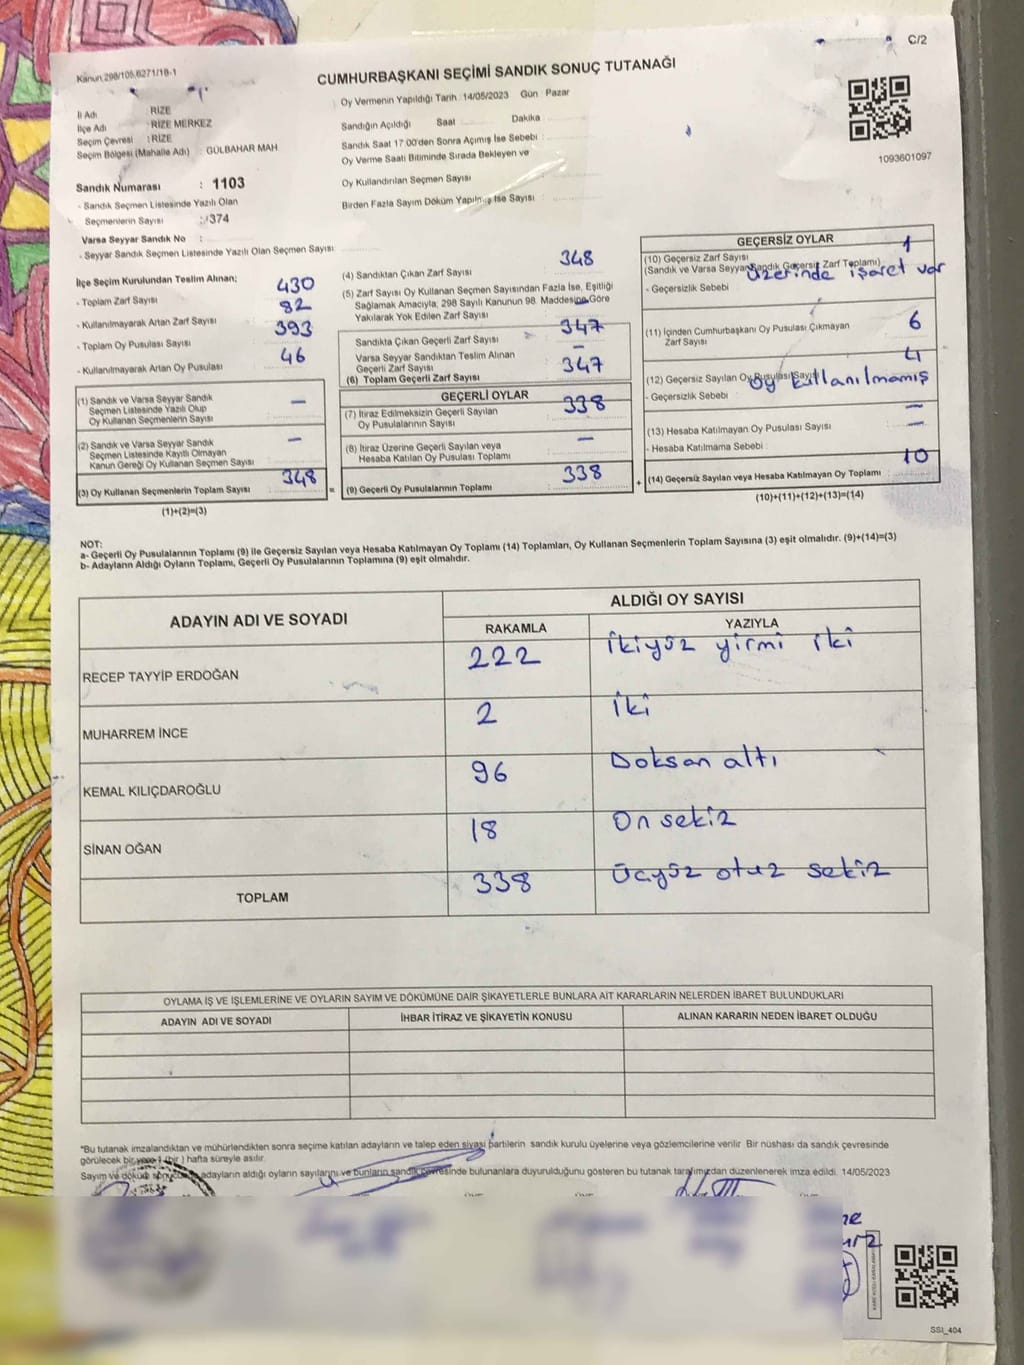 C/2
Kanun 298/105,6271/18-1
CUMHURBAŞKANI SEÇİMİ SANDIK SONUÇ TUTANAĞI
İl Adı : RİZE
İlçe Adı : RİZE MERKEZ
Seçim Çevresi : RİZE
Seçim Bölgesi (Mahalle Adı) : GÜLBAHAR MAH
Sandık Numarası : 1103
- Sandık Seçmen Listesinde Yazılı Olan
Seçmenlerin Sayısı : 374
Varsa Seyyar Sandık No :
- Seyyar Sandık Seçmen Listesinde Yazılı Olan Seçmen Sayısı
Oy Vermenin Yapıldığı Tarih : 14/05/2023 Gün : Pazar
Sandığın Açıldığı Saat Dakika
Sandık Saat 17.00'den Sonra Açımış İse Sebebi :
Oy Verme Saati Bitiminde Sırada Bekleyen ve
Oy Kullandırılan Seçmen Sayısı
Birden Fazla Sayım Döküm Yapılmış İse Sayısı :
1093601097
İlçe Seçim Kurulundan Teslim Alınan;
- Toplam Zarf Sayısı 430
- Kullanılmayarak Artan Zarf Sayısı 82
- Toplam Oy Pusulası Sayısı 393
- Kullanılmayarak Artan Oy Pusulası 46
(1) Sandık ve Varsa Seyyar Sandık
Seçmen Listesinde Yazılı Olup
Oy Kullanan Seçmen Sayısı —
(2) Sandık ve Varsa Seyyar Sandık
Seçmen Listesinde Kayıtlı Olmayan
Kanun Gereği Oy Kullanan Seçmen Sayısı —
(3) Oy Kullanan Seçmenlerin Toplam Sayısı 348
(1)+(2)=(3)
=
(4) Sandıktan Çıkan Zarf Sayısı 348
(5) Zarf Sayısı Oy Kullanan Seçmen Sayısından Fazla İse, Eşitliği
Sağlamak Amacıyla, 298 Sayılı Kanunun 98. Maddesine Göre
Yakılarak Yok Edilen Zarf Sayısı —
Sandıkta Çıkan Geçerli Zarf Sayısı 347
Varsa Seyyar Sandıktan Teslim Alınan
Geçerli Zarf Sayısı —
(6) Toplam Geçerli Zarf Sayısı 347
GEÇERLİ OYLAR
(7) İtiraz Edilmeksizin Geçerli Sayılan
Oy Pusulasının Sayısı 338
(8) İtiraz Üzerine Geçerli Sayılan veya
Hesaba Katılan Oy Pusulası Toplamı —
(9) Geçerli Oy Pusulalarının Toplamı 338
+
GEÇERSİZ OYLAR
(10) Geçersiz Zarf Sayısı 1
(Sandık ve Varsa Seyyar Sandık Geçersiz Zarf Toplamı)
- Geçersizlik Sebebi üzerinde işaret var
(11) İçinden Cumhurbaşkanı Oy Pusulası Çıkmayan
Zarf Sayısı 6
(12) Geçersiz Sayılan Oy Pusulası Sayısı 4
- Geçersizlik Sebebi oy kullanılmamış
(13) Hesaba Katılmayan Oy Pusulası Sayısı —
- Hesaba Katılmama Sebebi : —
(14) Geçersiz Sayılan veya Hesaba Katılmayan Oy Toplamı 10
(10)+(11)+(12)+(13)=(14)
NOT:
a- Geçerli Oy Pusulalarının Toplamı (9) ile Geçersiz Sayılan veya Hesaba Katılmayan Oy Toplamı (14) Toplamları, Oy Kullanan Seçmenlerin Toplam Sayısına (3) eşit olmalıdır. (9)+(14)=(3)
b- Adayların Aldığı Oyların Toplamı, Geçerli Oy Pusulalarının Toplamına (9) eşit olmalıdır.
ADAYIN ADI VE SOYADI ALDIĞI OY SAYISI
RAKAMLA YAZIYLA
RECEP TAYYİP ERDOĞAN 222 İkiyüz yirmi iki
MUHARREM İNCE 2 İki
KEMAL KILIÇDAROĞLU 96 Doksan altı
SİNAN OĞAN 18 On sekiz
TOPLAM 338 Üçyüz otuz sekiz
OYLAMA İŞ VE İŞLEMLERİNE VE OYLARIN SAYIM VE DÖKÜMÜNE DAİR ŞİKAYETLERLE BUNLARA AİT KARARLARIN NELERDEN İBARET BULUNDUKLARI
ADAYIN ADI VE SOYADI İHBAR İTİRAZ VE ŞİKAYETİN KONUSU ALINAN KARARIN NEDEN İBARET OLDUĞU
*Bu tutanak imzalandıktan ve mühürlendikten sonra seçime katılan adayların ve talep eden siyasi partilerin sandık kurulu üyelerine veya gözlemcilerine verilir. Bir nüshası da sandık çevresinde
görülecek bir yere 1 (bir ) hafta süreyle asılır.
Sayım ve döküm sonucunda adayların aldığı oyların sayılarını ve bunların sandık çevresinde bulunanlara duyurulduğunu gösteren bu tutanak tarafımızdan düzenlenerek imza edildi. 14/05/2023
SSI_404